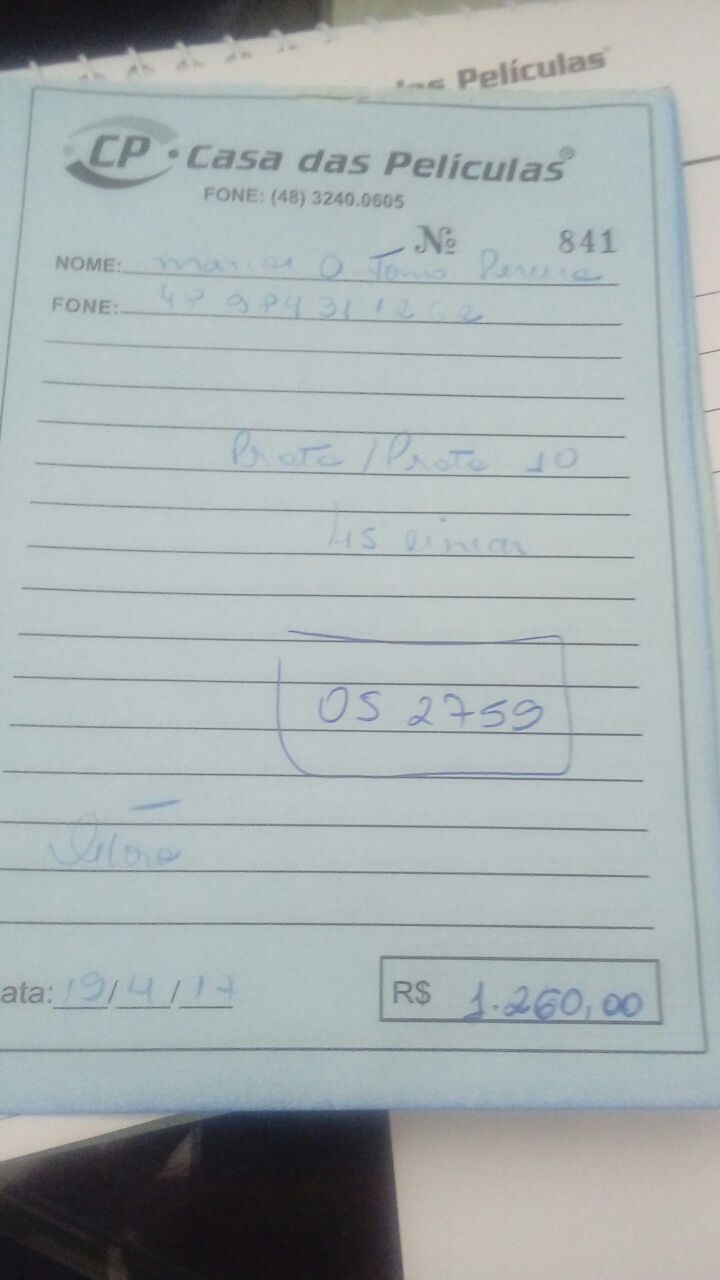 das Películas
CP • Casa das Películas®
FONE: (48) 3240.0605
Nº 841
NOME: O Pereira
FONE: 48 984311262
Prata / Prata 10
45 linear
OS 2759
ata: 19/4/17
R$ 1.260,00